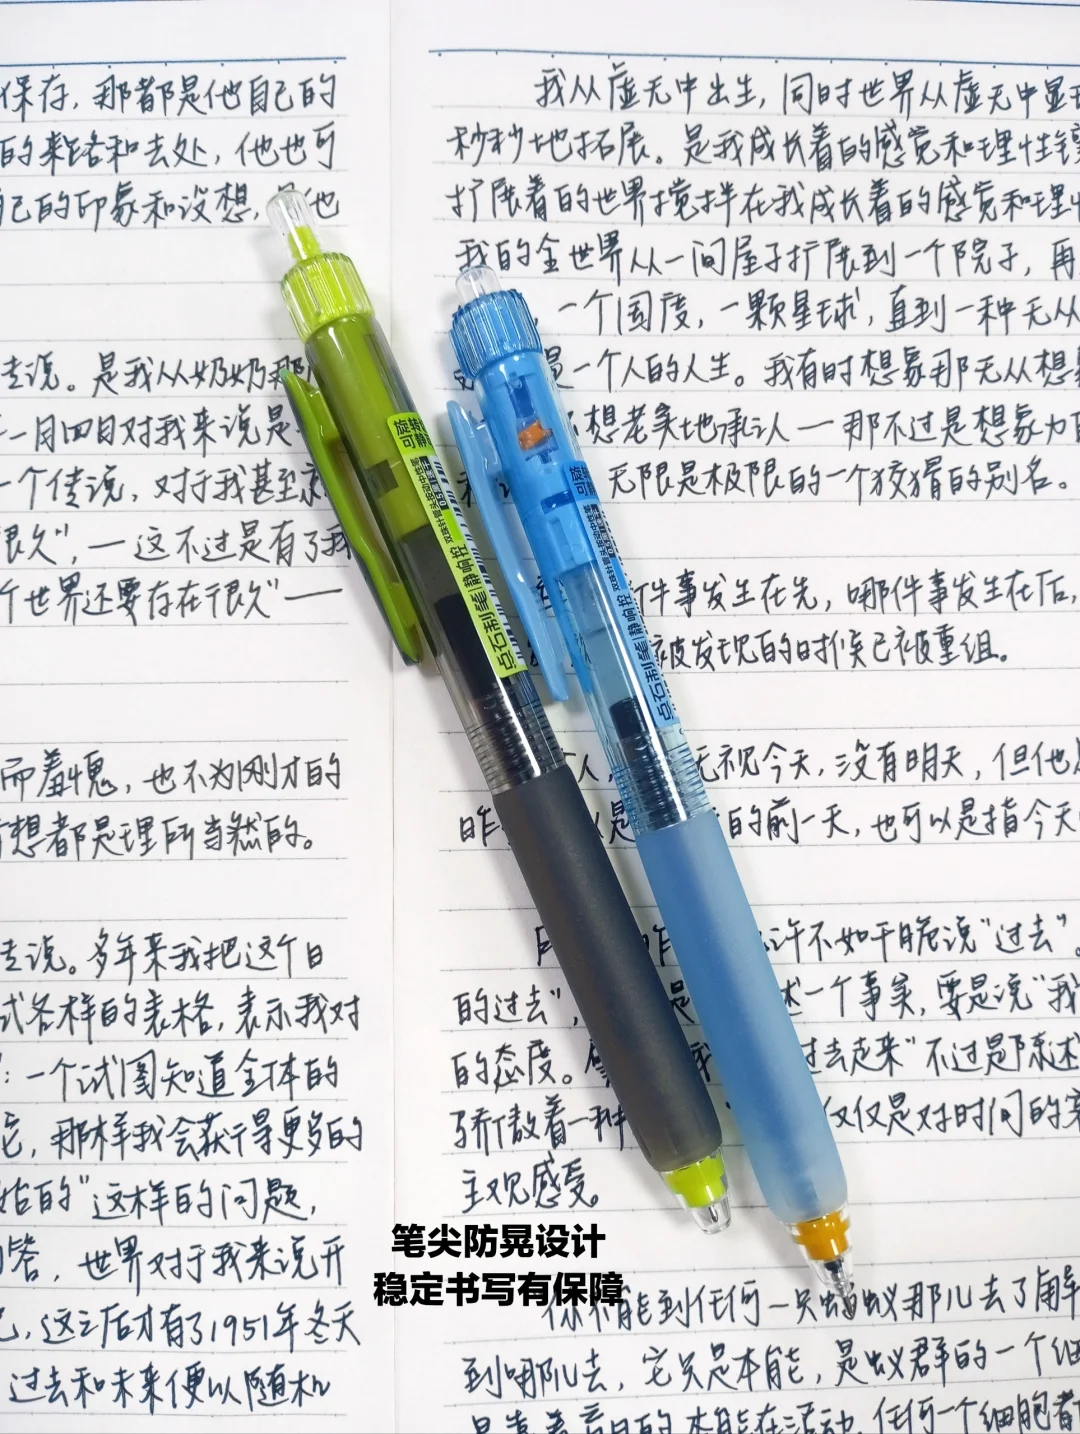 保存，那都是他自己的
的来路和去处，他也可
己的印象和设想，是他
传说。是我从奶奶那
年一月四日对我来说是
一个传说，对于我甚至
很久”，一这不过是有了我
个世界还要存在很久”——
而羞愧，也不为刚才的
想都是理所当然的。
传说。多年来我把这个日
式各样的表格，表示我对
：一个试图知道全体的
它，那样我会获得更多的
始的”这样的问题，
答，世界对于我来说开
已，这之后才有了1951年冬天
过去和未来便以随机
我从虚无中出生，同时世界从虚无中显
秒秒地拓展。是我成长着的感觉和理性
扩展着的世界搅拌在我成长着的感觉和理
我的全世界从一间屋子扩展到一个院子，再
，一个国度，一颗星球，直到一种无从
是一个人的人生。我有时想象那无从想
想老实地承认一那不过是想象力
无限是极限的一个狡猾的别名。
件事发生在先，哪件事发生在后，
被发现的时候已被重组。
人，无视今天，没有明天，但他
昨 是 的前一天，也可以是指今天
许不如干脆说“过去”。
的过去”，是 述一个事实，要是说“我
的态度。 我 过去起来”不过是陈述
骄傲着一种 仅仅是对时间的
主观感受。
你不能到任何一只蚂蚁那儿去了解
到哪儿去，它只是本能，是蚁群的一个细
任何一个细胞都
旋转
可静
双珠针管头按动中性笔
0.5
点石制笔|静响控
旋转
可静
点石制笔|静响控
笔尖防晃设计
稳定书写有保障